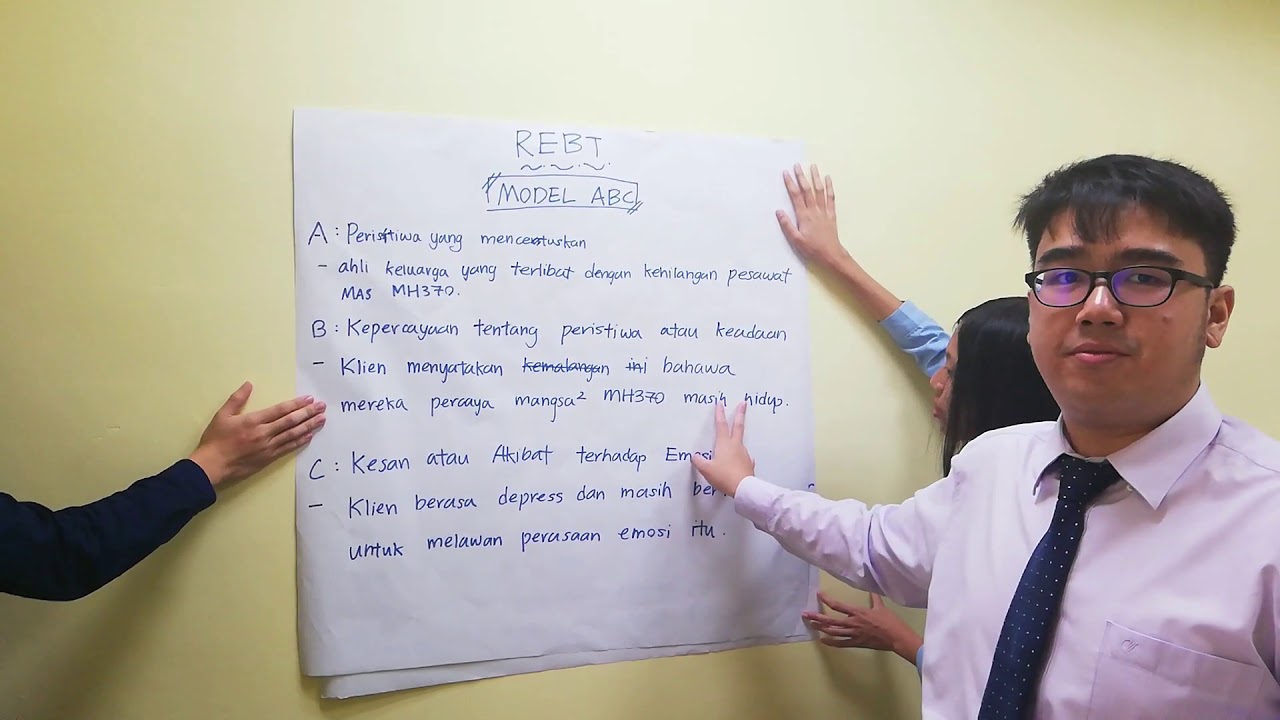 REBT
MODEL ABC
A : Peristiwa yang mencetuskan
- ahli keluarga yang terlibat dengan kehilangan pesawat
MAS MH370.
B : Kepercayaan tentang peristiwa atau keadaan
- Klien menyatakan kemalangan ini bahawa
mereka percaya mangsa² MH370 masih hidup.
C : Kesan atau Akibat terhadap Emosi
- Klien berasa depress dan masih
untuk melawan perasaan emosi itu.